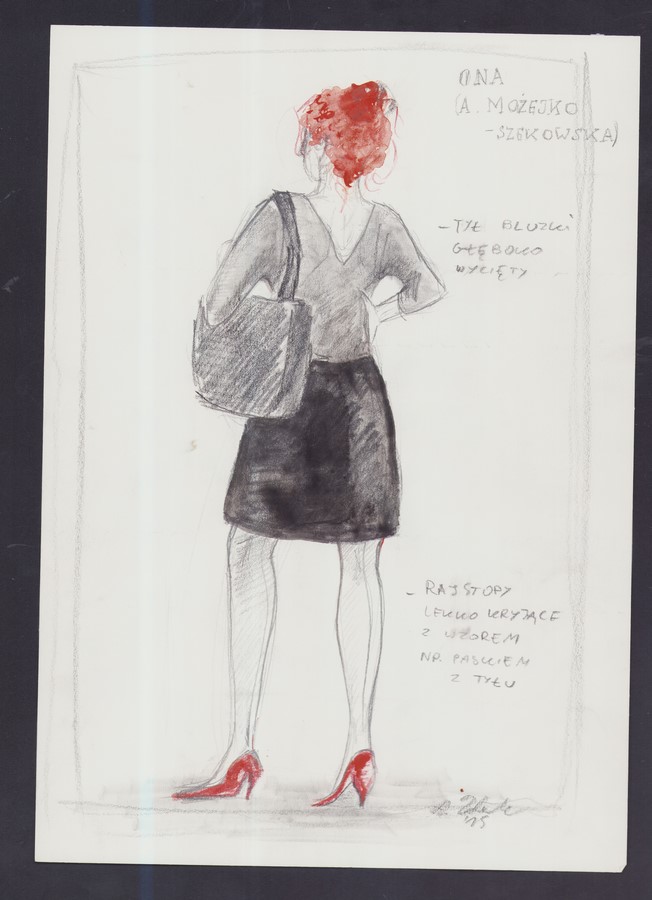 ONA
(A. MOŻEJKO
-SZEKOWSKA)
- TYŁ BLUZKI
GŁĘBOKO
WYCIĘTY
- RAJSTOPY
LEKKO KRYJĄCE
Z WZOREM
NP. PASKIEM
Z TYŁU
'15